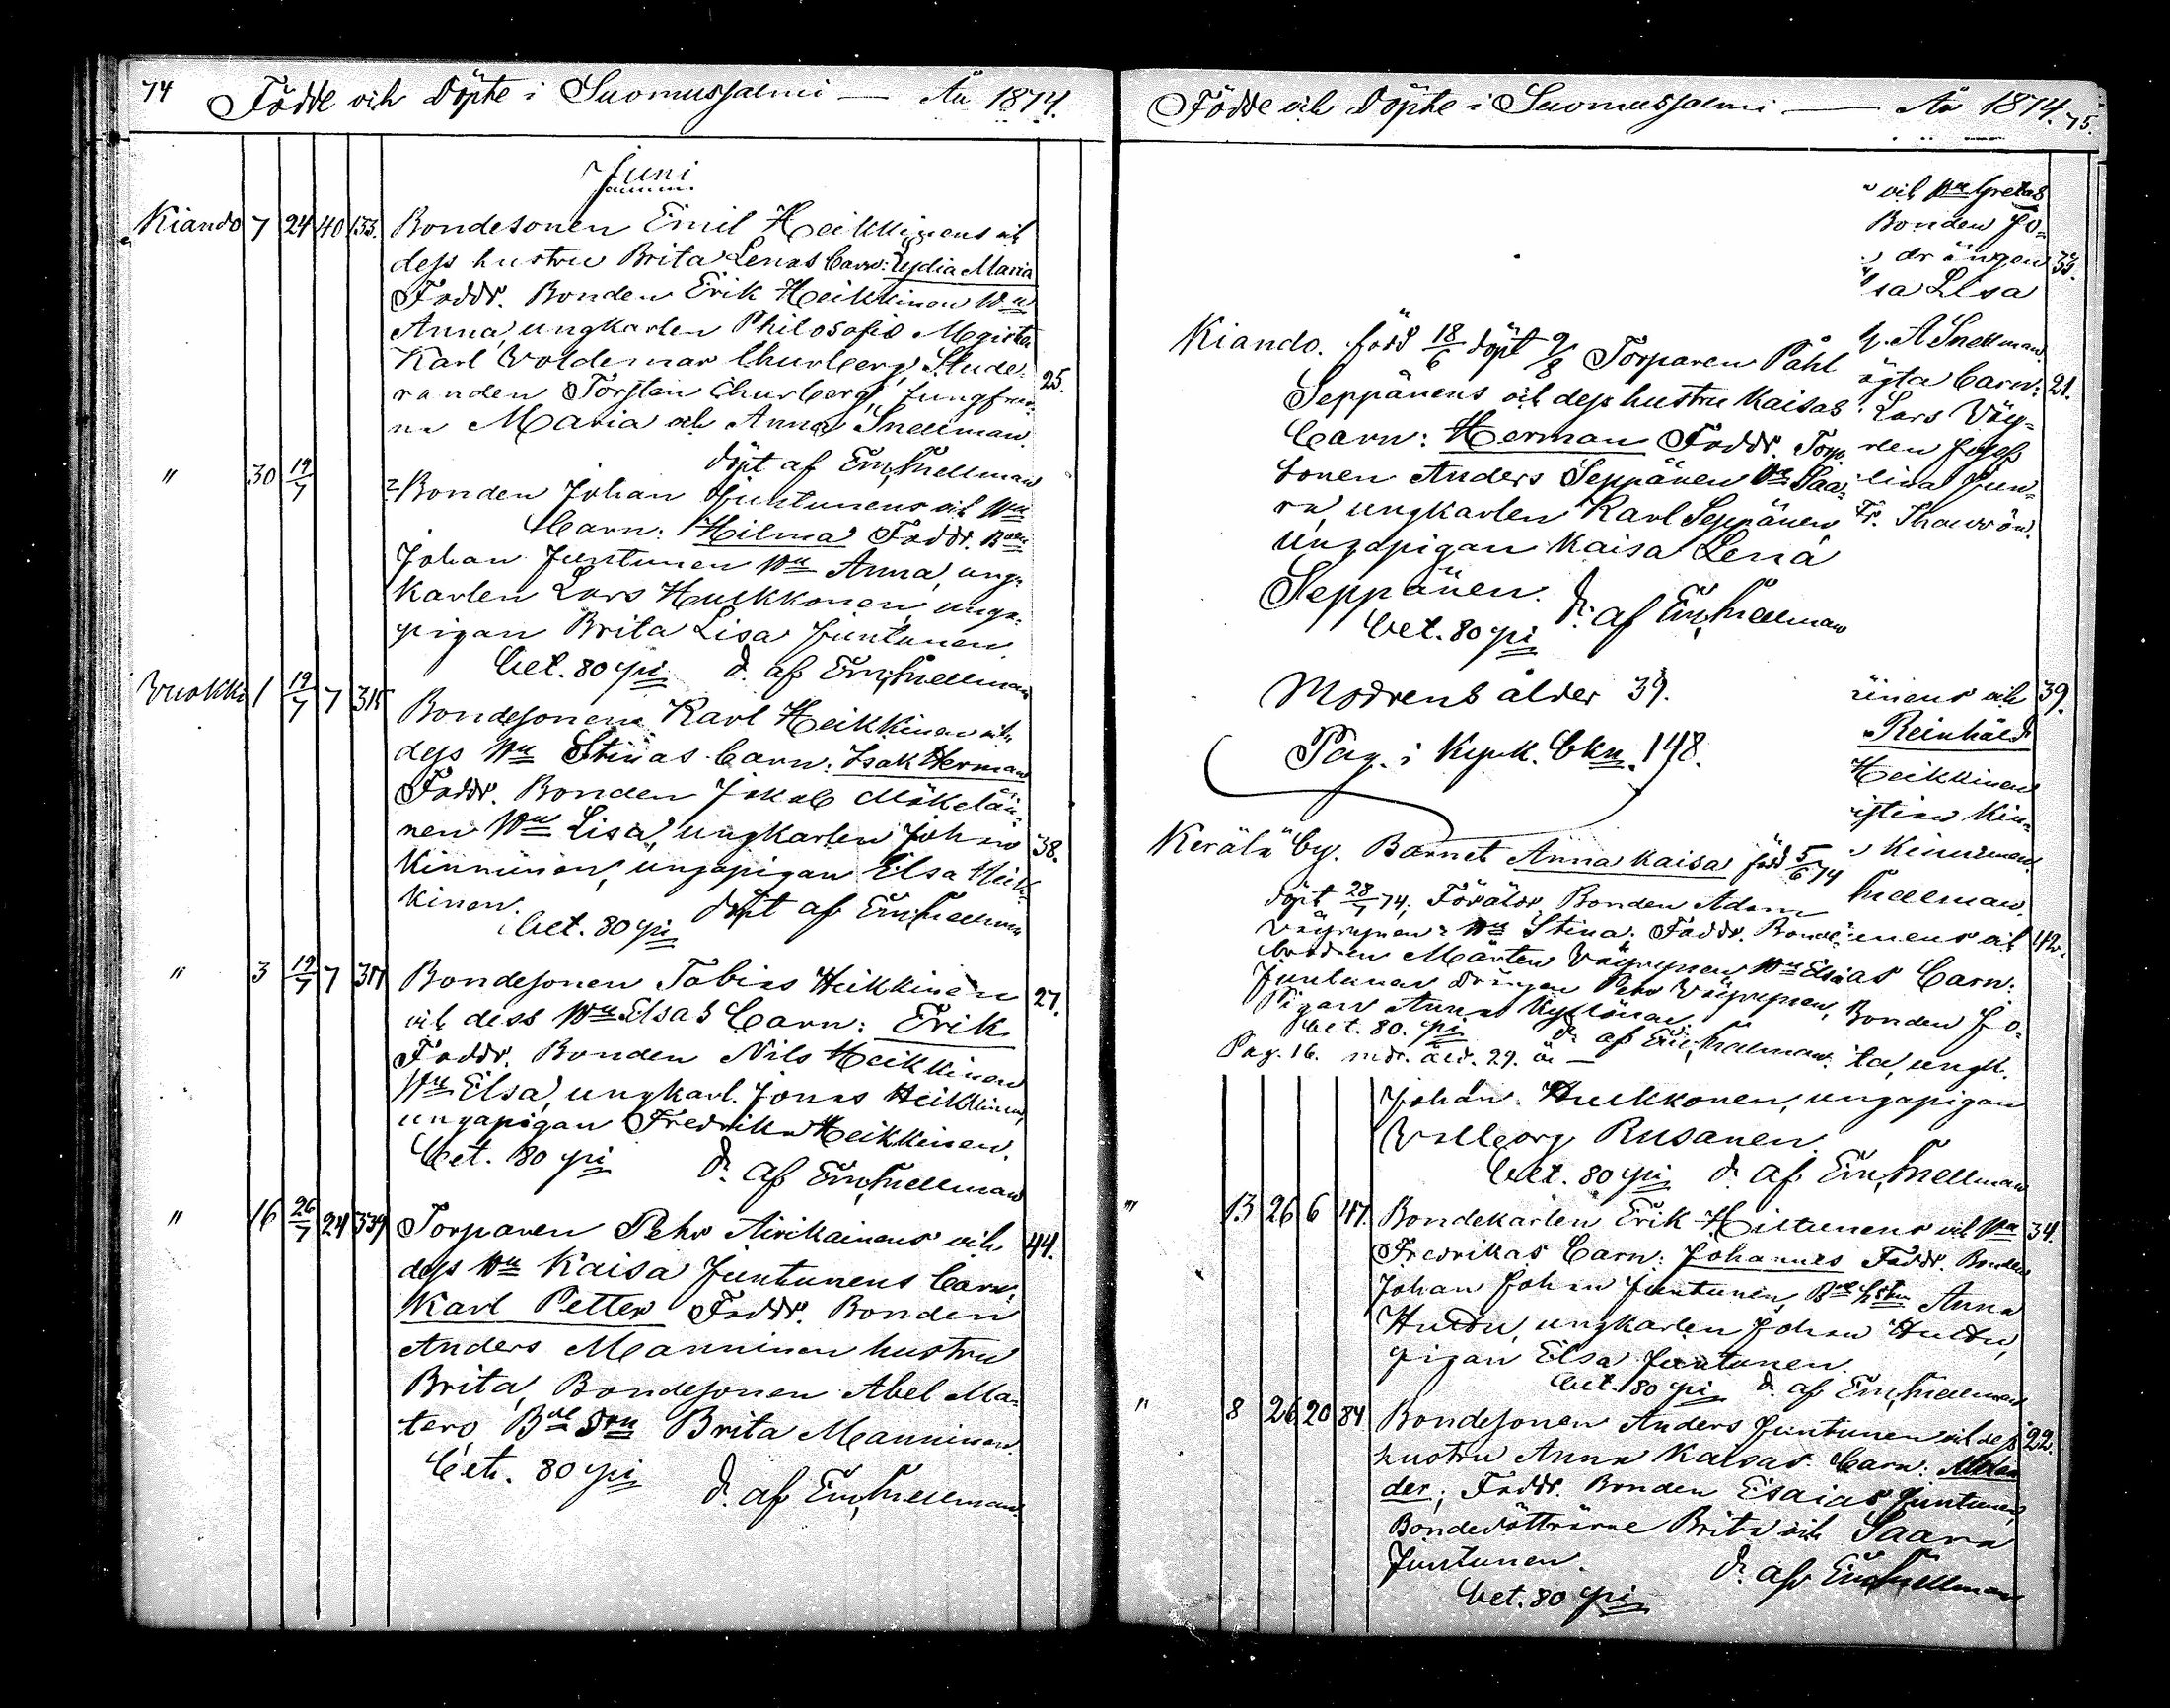 74 Födde och Döpte i Suomussalmi — År 1874.
Juni
Kiando 7 24 40 133. Bondesonen Emil Heikkinens och
dess hustru Brita Lenas barn: Lydia Maria
Faddr. Bonden Erik Heikkinen Hu
Anna, ungkarlen Philosofie Magister
Karl Voldemar Churberg, Stude-
randen Torsten Churberg, Jungfrur- 25.
na Maria och Anna Snellman.
döpt af Em. Snellman
" 30 19/7 Bonden Johan Juntunens och Hu
barn: Hilma Faddr. Bon
Johan Juntunen Hu Anna, ung-
karlen Lars Hukkonen, unga-
pigan Brita Lisa Juntunen.
bet. 80 pi d. af Em. Snellman
Vuokki 1 19/7 7 315 Bondesonen Karl Heikkinen och
dess Hu Stinas barn: Isak Herman
Faddr. Bonden Jakob Mäkeläi-
nen Hu Lisa, ungkarlen Johan 38.
Kinnunen, ungapigan Elsa Heik-
kinen.
bet. 80 pi döpt af Em. Snellman
" 3 19/7 7 317 Bondesonen Tobias Heikkinen 27.
och dess Hu Elsas barn: Erik
Faddr. Bonden Nils Heikkinen
Hu Elsa, ungkarl. Jonas Heikkinen,
ungapigan Fredrika Heikkinen.
bet. 80 pi d. af Em. Snellman
" 16 26/7 24 339 Torparen Pehr Airikainens och 44.
dess Hu Kaisa Juntunens barn:
Karl Petter Faddr. Bonden
Anders Manninen hustru
Brita, Bondesonen Abel Ma-
tero, Brita Manninen.
bet. 80 pi d. af Em. Snellman.
Födde och Döpte i Suomussalmi — År 1874. 75.
och Hu Gretas
Bonden Jo-
drängen 33.
Lisa
Snellman.
Kiando. född 18/6 döpt 9/8 Torparen Påhl
Seppänens och dess hustru Kaisas
barn: Herman Faddr. Torp
sonen Anders Seppänen Hu Saa-
ra, ungkarlen Karl Seppänen
Ungapigan Kaisa Lena
Seppänen. d. af Em. Snellman
bet. 80 pi
Modrens ålder 39.
Pag. i Kyrk. bkn. 148.
barn: 21.
Lars Väy-
rlen
lina Jun-
Fr. Thauvón.
och 39.
Reinhold
Heikkinen
Kinnunen.
Snellman.
Kerälä by. Barnet Anna Kaisa född 5/6 74
döpt 28/7 74, Föräldr. Bonden Adam
Väyrynen Hu Stina. Faddr. Bonde-
Mårten Väyrynen, Hu Elsa
Juntunen drängen Pehr Väyrynen,
Pigan Anna Kyllönen
bet. 80. pi d. af Em. Snellman.
Pag. 16. mdr. åld. 29. år —
och 42.
barn:
Bonden Jo-
ta, ungk.
Johan Hukkonen, ungapigan
Vallborg Rusanen.
bet. 80 pi d. af Em. Snellman
" 13 26 6 117. Bondekarlen Erik Hiltunens och Hu 34.
Fredrikas barn: Johannes Faddr. Bonden
Johan Johan Juntunen, Anna
Huttu, ungkarlen Johan Huttu,
pigan Elsa Juntunen.
bet. 80 pi d. af Em. Snellman
" 8 26 20 84 Bondesonen Anders Juntunen och dess 22.
hustru Anna Kaisas barn:
der, Faddr. Bonden Esaias Juntunen,
Bondedöttrarne Brita och Saara
Juntunen. d. af Em. Snellman
bet. 80 pi